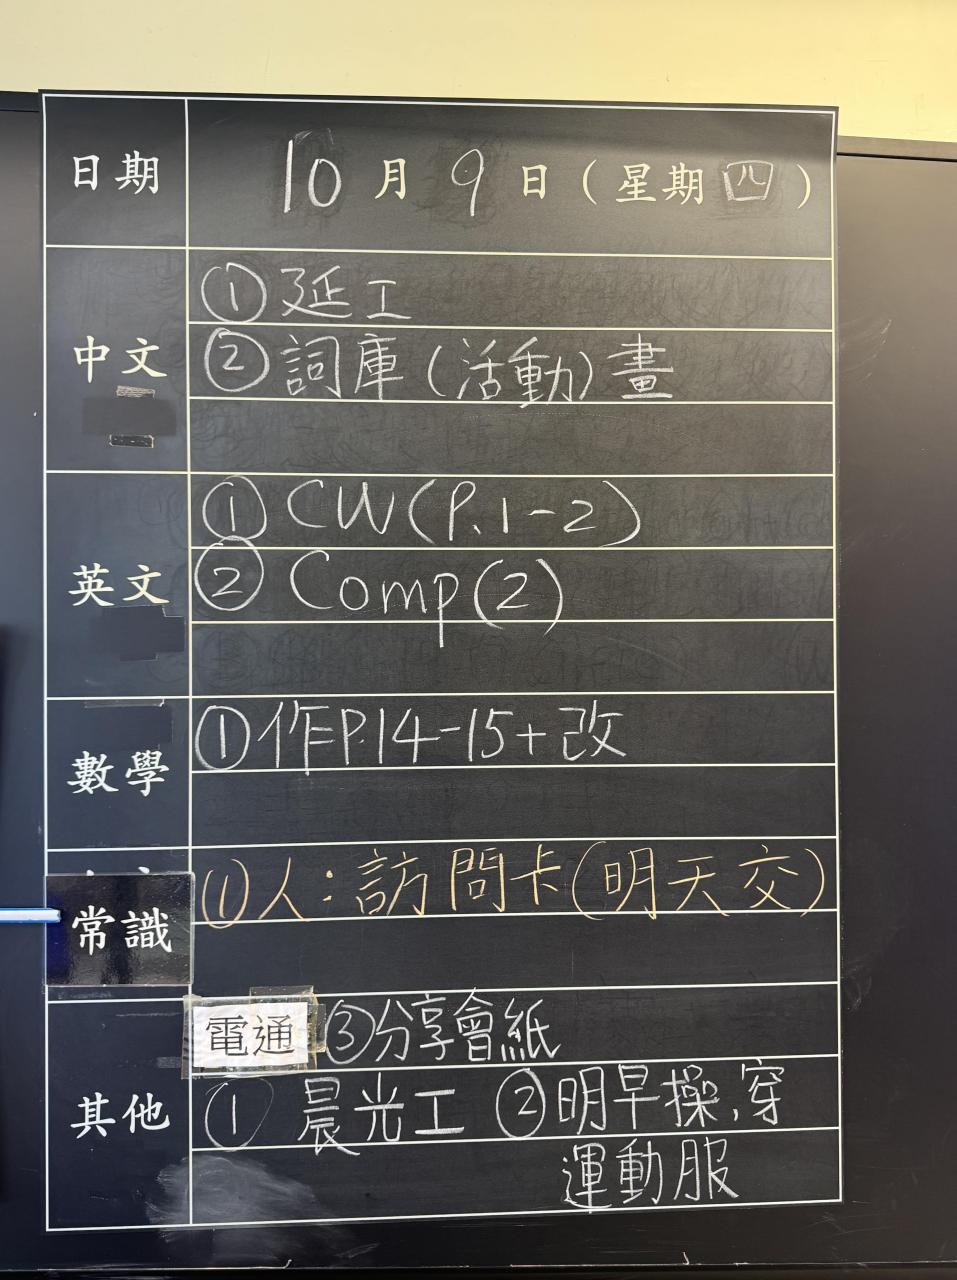 日期 10月9日(星期四)
中文
①延工
②詞庫(活動)畫
英文
①CW(P.1-2)
②Comp(2)
數學
①作P.14-15+改
常識
①人:訪問卡(明天交)
其他
電通 ③分享會紙
①晨光工 ②明早操,穿
運動服